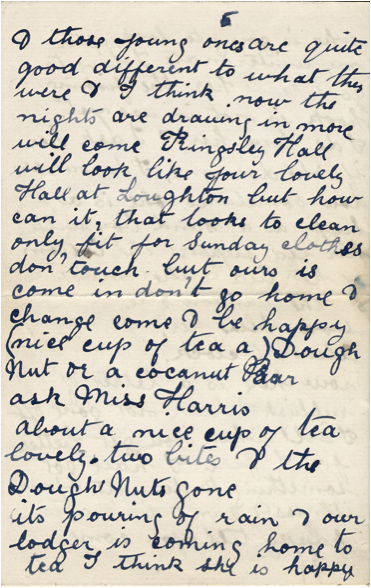 5
& those young ones are quite
good different to what they
were & I think now the
nights are drawing in more
will come Kingsley Hall
will look like your lovely
Hall at Loughton but how
can it, that looks to clean
only fit for Sunday clothes
don't touch. but ours is
come in don't go home &
change come & be happy
(nice cup of tea a) Dough
Nut or a cocanut Bar
ask Miss Harris
about a nice cup of tea
lovely. two bites & the
Dough Nuts gone
its pouring of rain & our
lodger is coming home to
tea I think she is happy